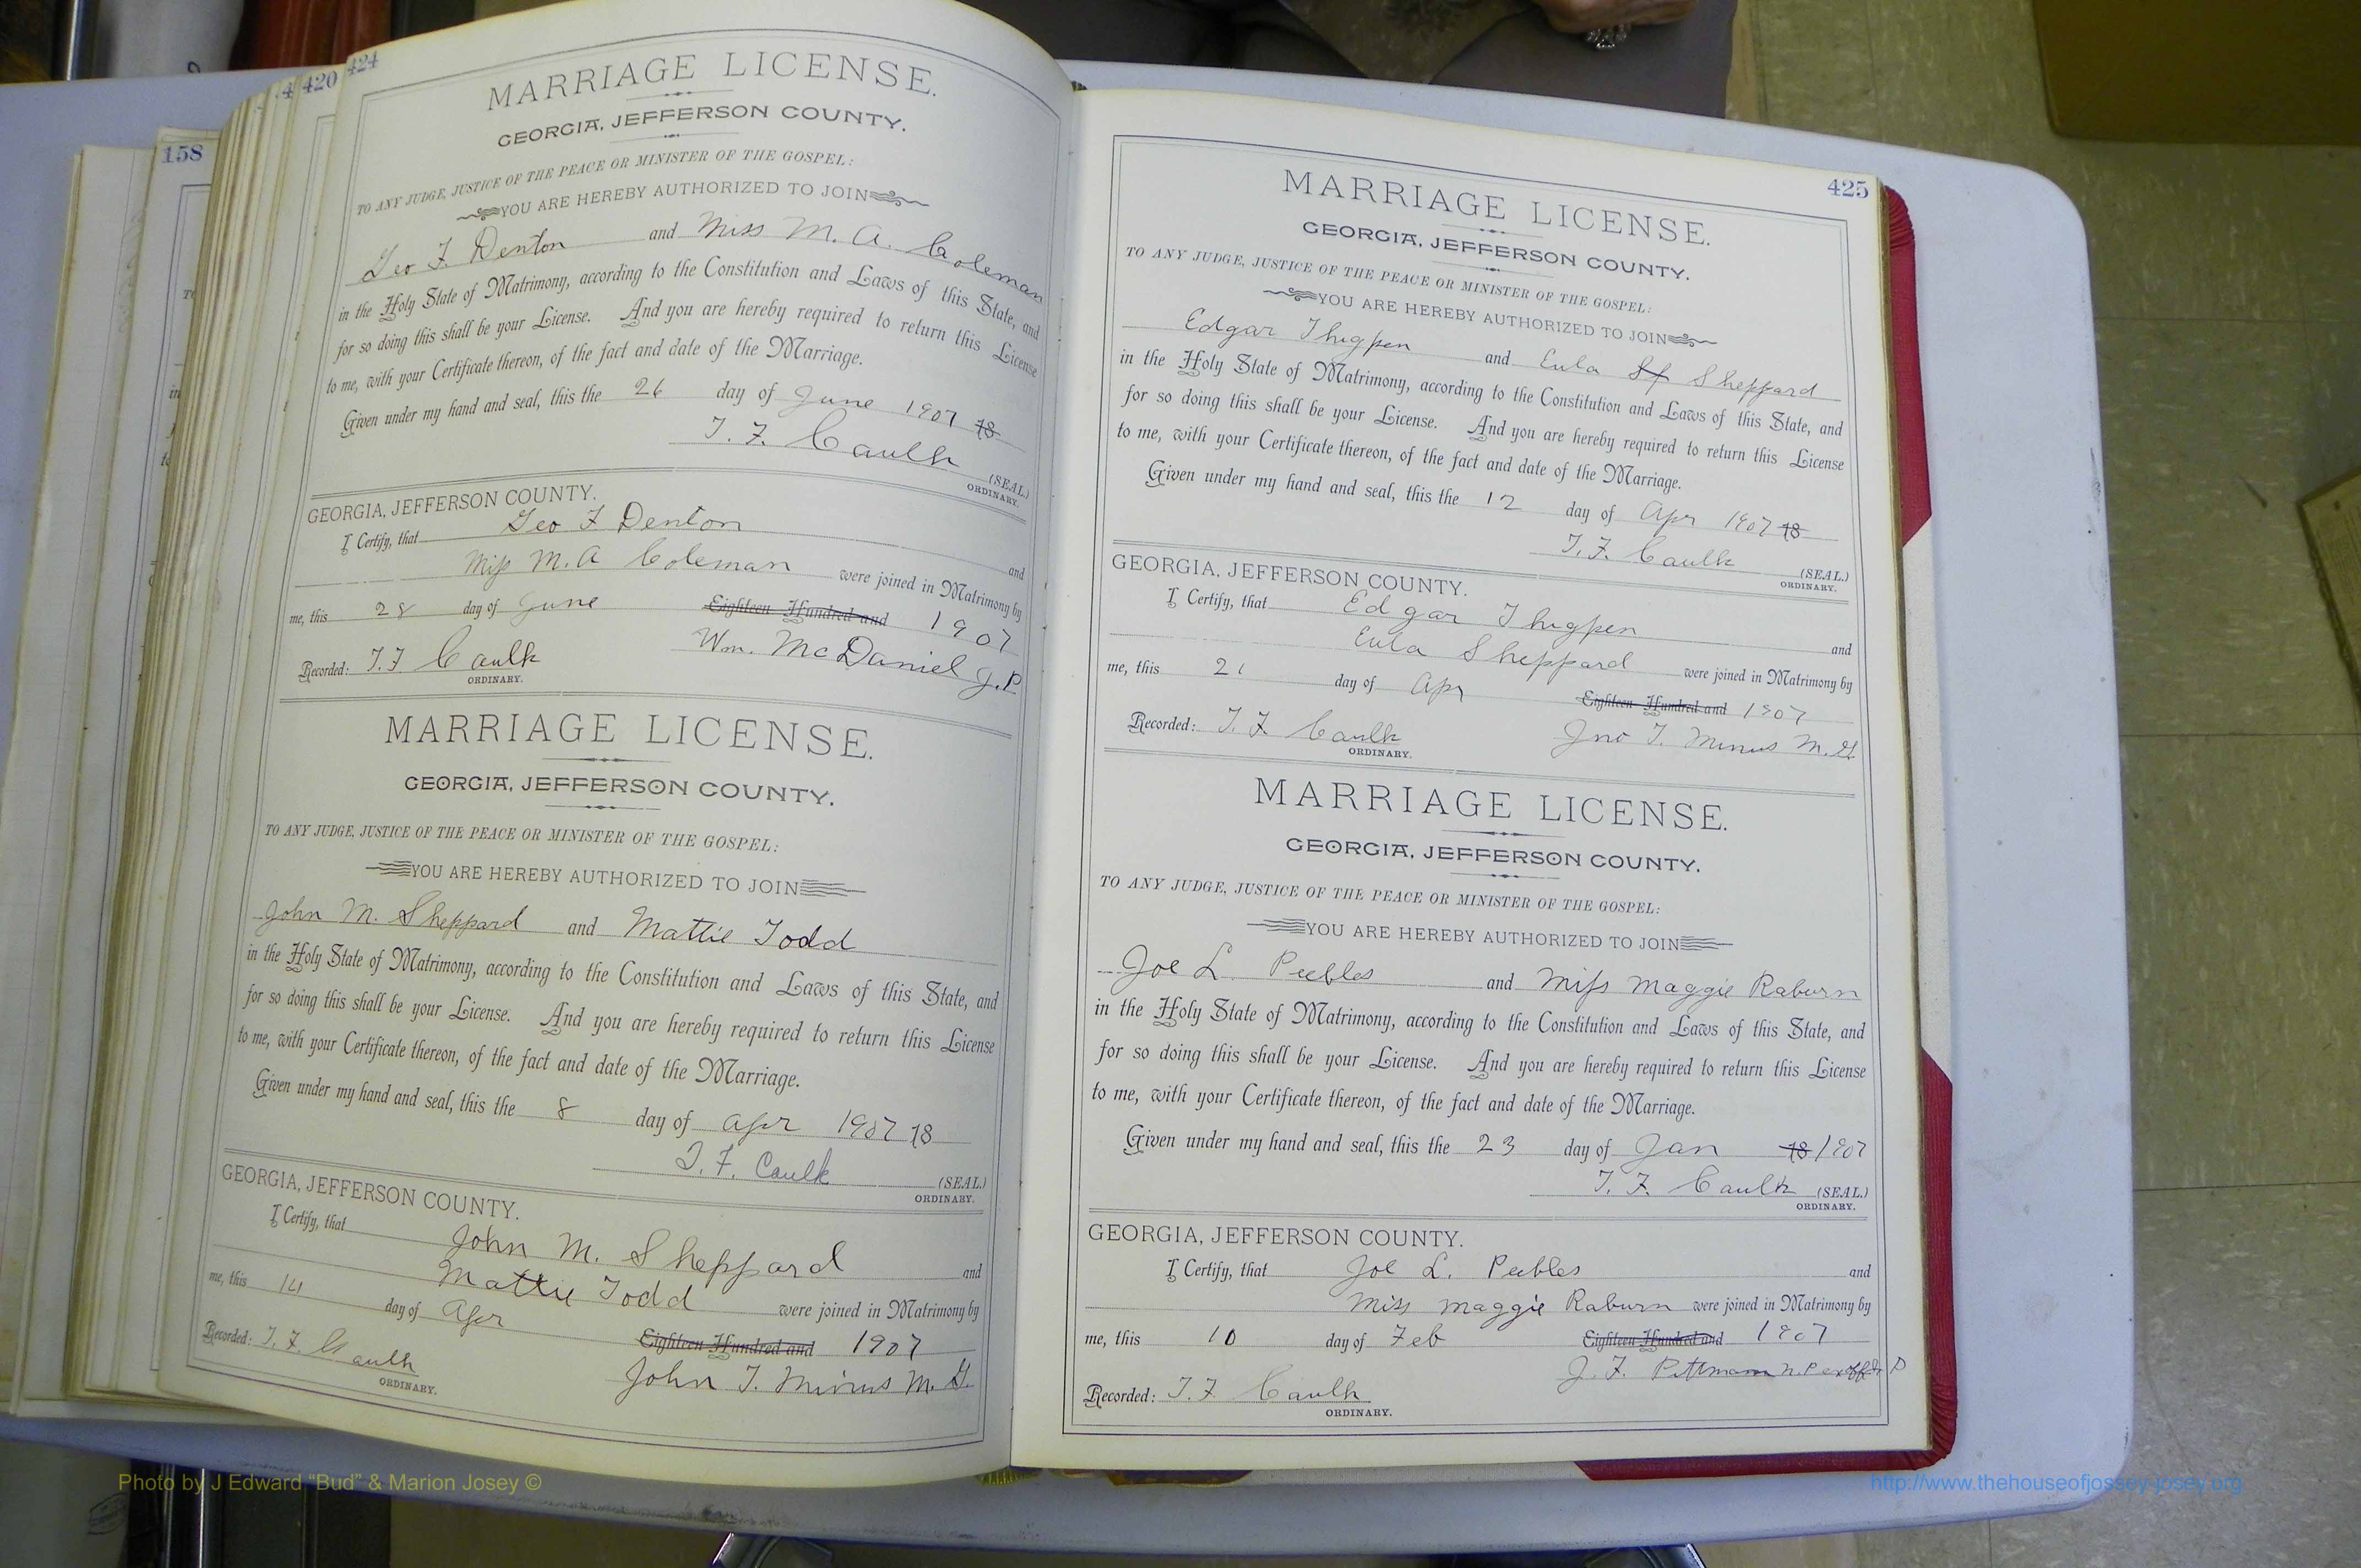 158
4
420
424
MARRIAGE LICENSE.
GEORGIA, JEFFERSON COUNTY.
TO ANY JUDGE, JUSTICE OF THE PEACE OR MINISTER OF THE GOSPEL:
YOU ARE HEREBY AUTHORIZED TO JOIN
Geo F. Denton and Miss M. A. Coleman
in the Holy State of Matrimony, according to the Constitution and Laws of this State, and
for so doing this shall be your License. And you are hereby required to return this License
to me, with your Certificate thereon, of the fact and date of the Marriage.
Given under my hand and seal, this the 26 day of June 1907 18
T. F. Caulk
(SEAL.)
ORDINARY.
GEORGIA, JEFFERSON COUNTY.
I Certify, that Geo F Denton and
Miss M. A Coleman were joined in Matrimony by
me, this 28 day of June Eighteen Hundred and 1907
Wm. McDaniel J. P.
Recorded: T. F Caulk
ORDINARY.
MARRIAGE LICENSE.
GEORGIA, JEFFERSON COUNTY.
TO ANY JUDGE, JUSTICE OF THE PEACE OR MINISTER OF THE GOSPEL:
YOU ARE HEREBY AUTHORIZED TO JOIN
John M. Sheppard and Mattie Todd
in the Holy State of Matrimony, according to the Constitution and Laws of this State, and
for so doing this shall be your License. And you are hereby required to return this License
to me, with your Certificate thereon, of the fact and date of the Marriage.
Given under my hand and seal, this the 8 day of Apr 1907 18
T. F. Caulk
(SEAL.)
ORDINARY.
GEORGIA, JEFFERSON COUNTY.
I Certify, that John M. Sheppard and
Mattie Todd were joined in Matrimony by
me, this 14 day of Apr Eighteen Hundred and 1907
John T. Minus M. G.
Recorded: T. F. Caulk
ORDINARY.
425
MARRIAGE LICENSE.
GEORGIA, JEFFERSON COUNTY.
TO ANY JUDGE, JUSTICE OF THE PEACE OR MINISTER OF THE GOSPEL:
YOU ARE HEREBY AUTHORIZED TO JOIN
Edgar Thigpen and Eula Sheppard
in the Holy State of Matrimony, according to the Constitution and Laws of this State, and
for so doing this shall be your License. And you are hereby required to return this License
to me, with your Certificate thereon, of the fact and date of the Marriage.
Given under my hand and seal, this the 12 day of Apr 1907 18
T. F. Caulk
(SEAL.)
ORDINARY.
GEORGIA, JEFFERSON COUNTY.
I Certify, that Edgar Thigpen and
Eula Sheppard were joined in Matrimony by
me, this 21 day of Apr Eighteen Hundred and 1907
Jno T. Minus M. G
Recorded: T. F. Caulk
ORDINARY.
MARRIAGE LICENSE.
GEORGIA, JEFFERSON COUNTY.
TO ANY JUDGE, JUSTICE OF THE PEACE OR MINISTER OF THE GOSPEL:
YOU ARE HEREBY AUTHORIZED TO JOIN
Joe L. Peebles and Miss Maggie Raburn
in the Holy State of Matrimony, according to the Constitution and Laws of this State, and
for so doing this shall be your License. And you are hereby required to return this License
to me, with your Certificate thereon, of the fact and date of the Marriage.
Given under my hand and seal, this the 23 day of Jan 18 1907
T. F. Caulk (SEAL.)
ORDINARY.
GEORGIA, JEFFERSON COUNTY.
I Certify, that Joe L. Peebles and
Miss Maggie Raburn were joined in Matrimony by
me, this 10 day of Feb Eighteen Hundred and 1907
J. F. Pittman N. P
Recorded: T. F. Caulk
ORDINARY.
Photo by J Edward “Bud” & Marion Josey ©
http://www.thehouseofjossey-josey.org